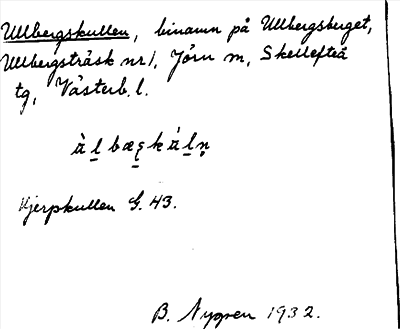 Ullbergskullen, binamn på Ullbergsberget,
Ullbergsträsk nr 1, Jörn sn, Skellefteå
tg, Västerb. l.
àl̲bæςkál̲n̥
Kjerpkullen G. 43.
B. Nygren 1932.